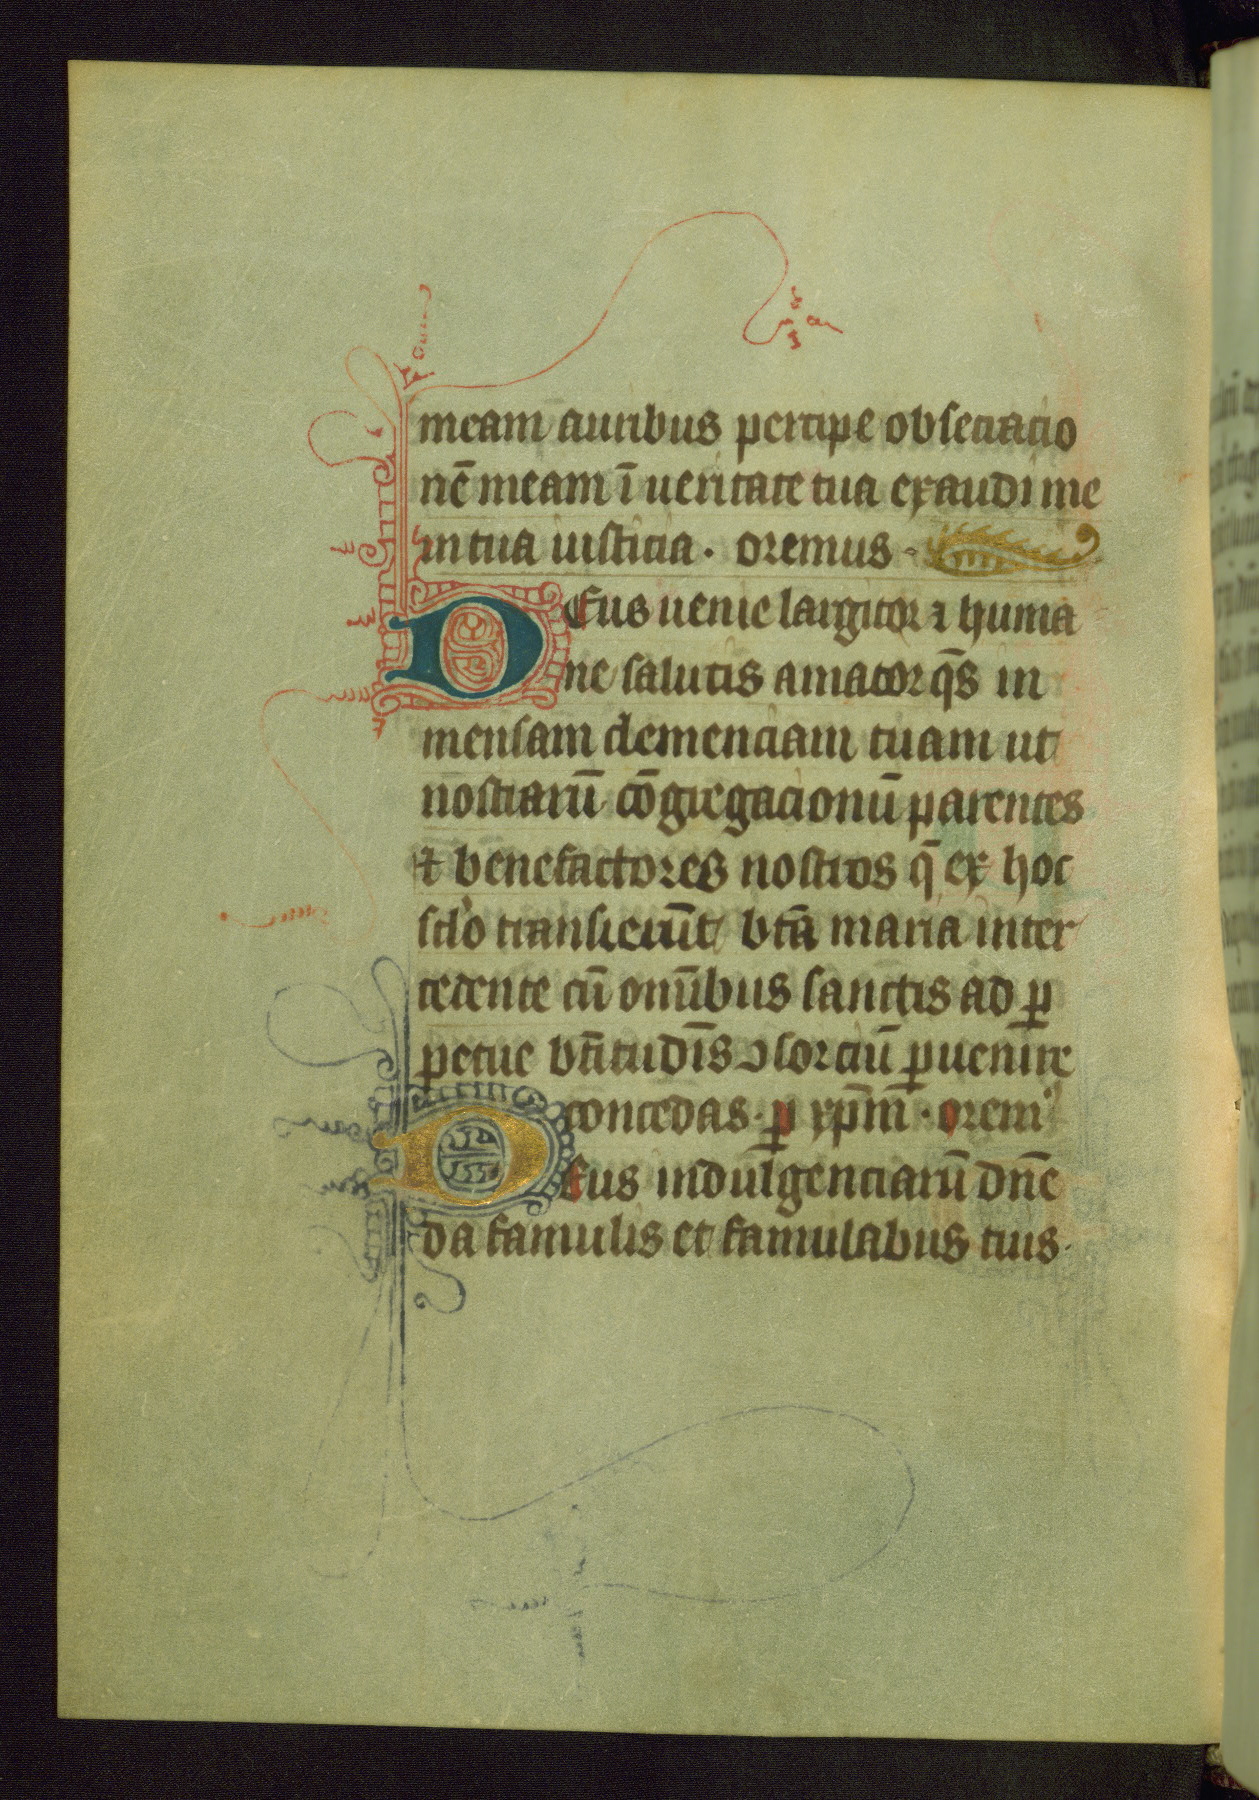 meam auribus percipe obsecracio
nē meam ī ueritate tua exaudi me
in tua iusticia · oremus ·
Deus uenie largitor ⁊ huma
ne salutis amator q̄s in
mensam clemenciam tuam ut
nostrarū cōgregacionū parentes
⁊ benefactores nostros q̄ ex hoc
sclo transierūt btā maria inter
cedente cū onībus sanctis ad ꝑ
petue btītudīs ↄsorciū ꝑuenire
concedas · ꝑ xp̄m̄ · orem⁹
Deus indulgenciarū dn̄e
da famulis et famulabus tuis ·